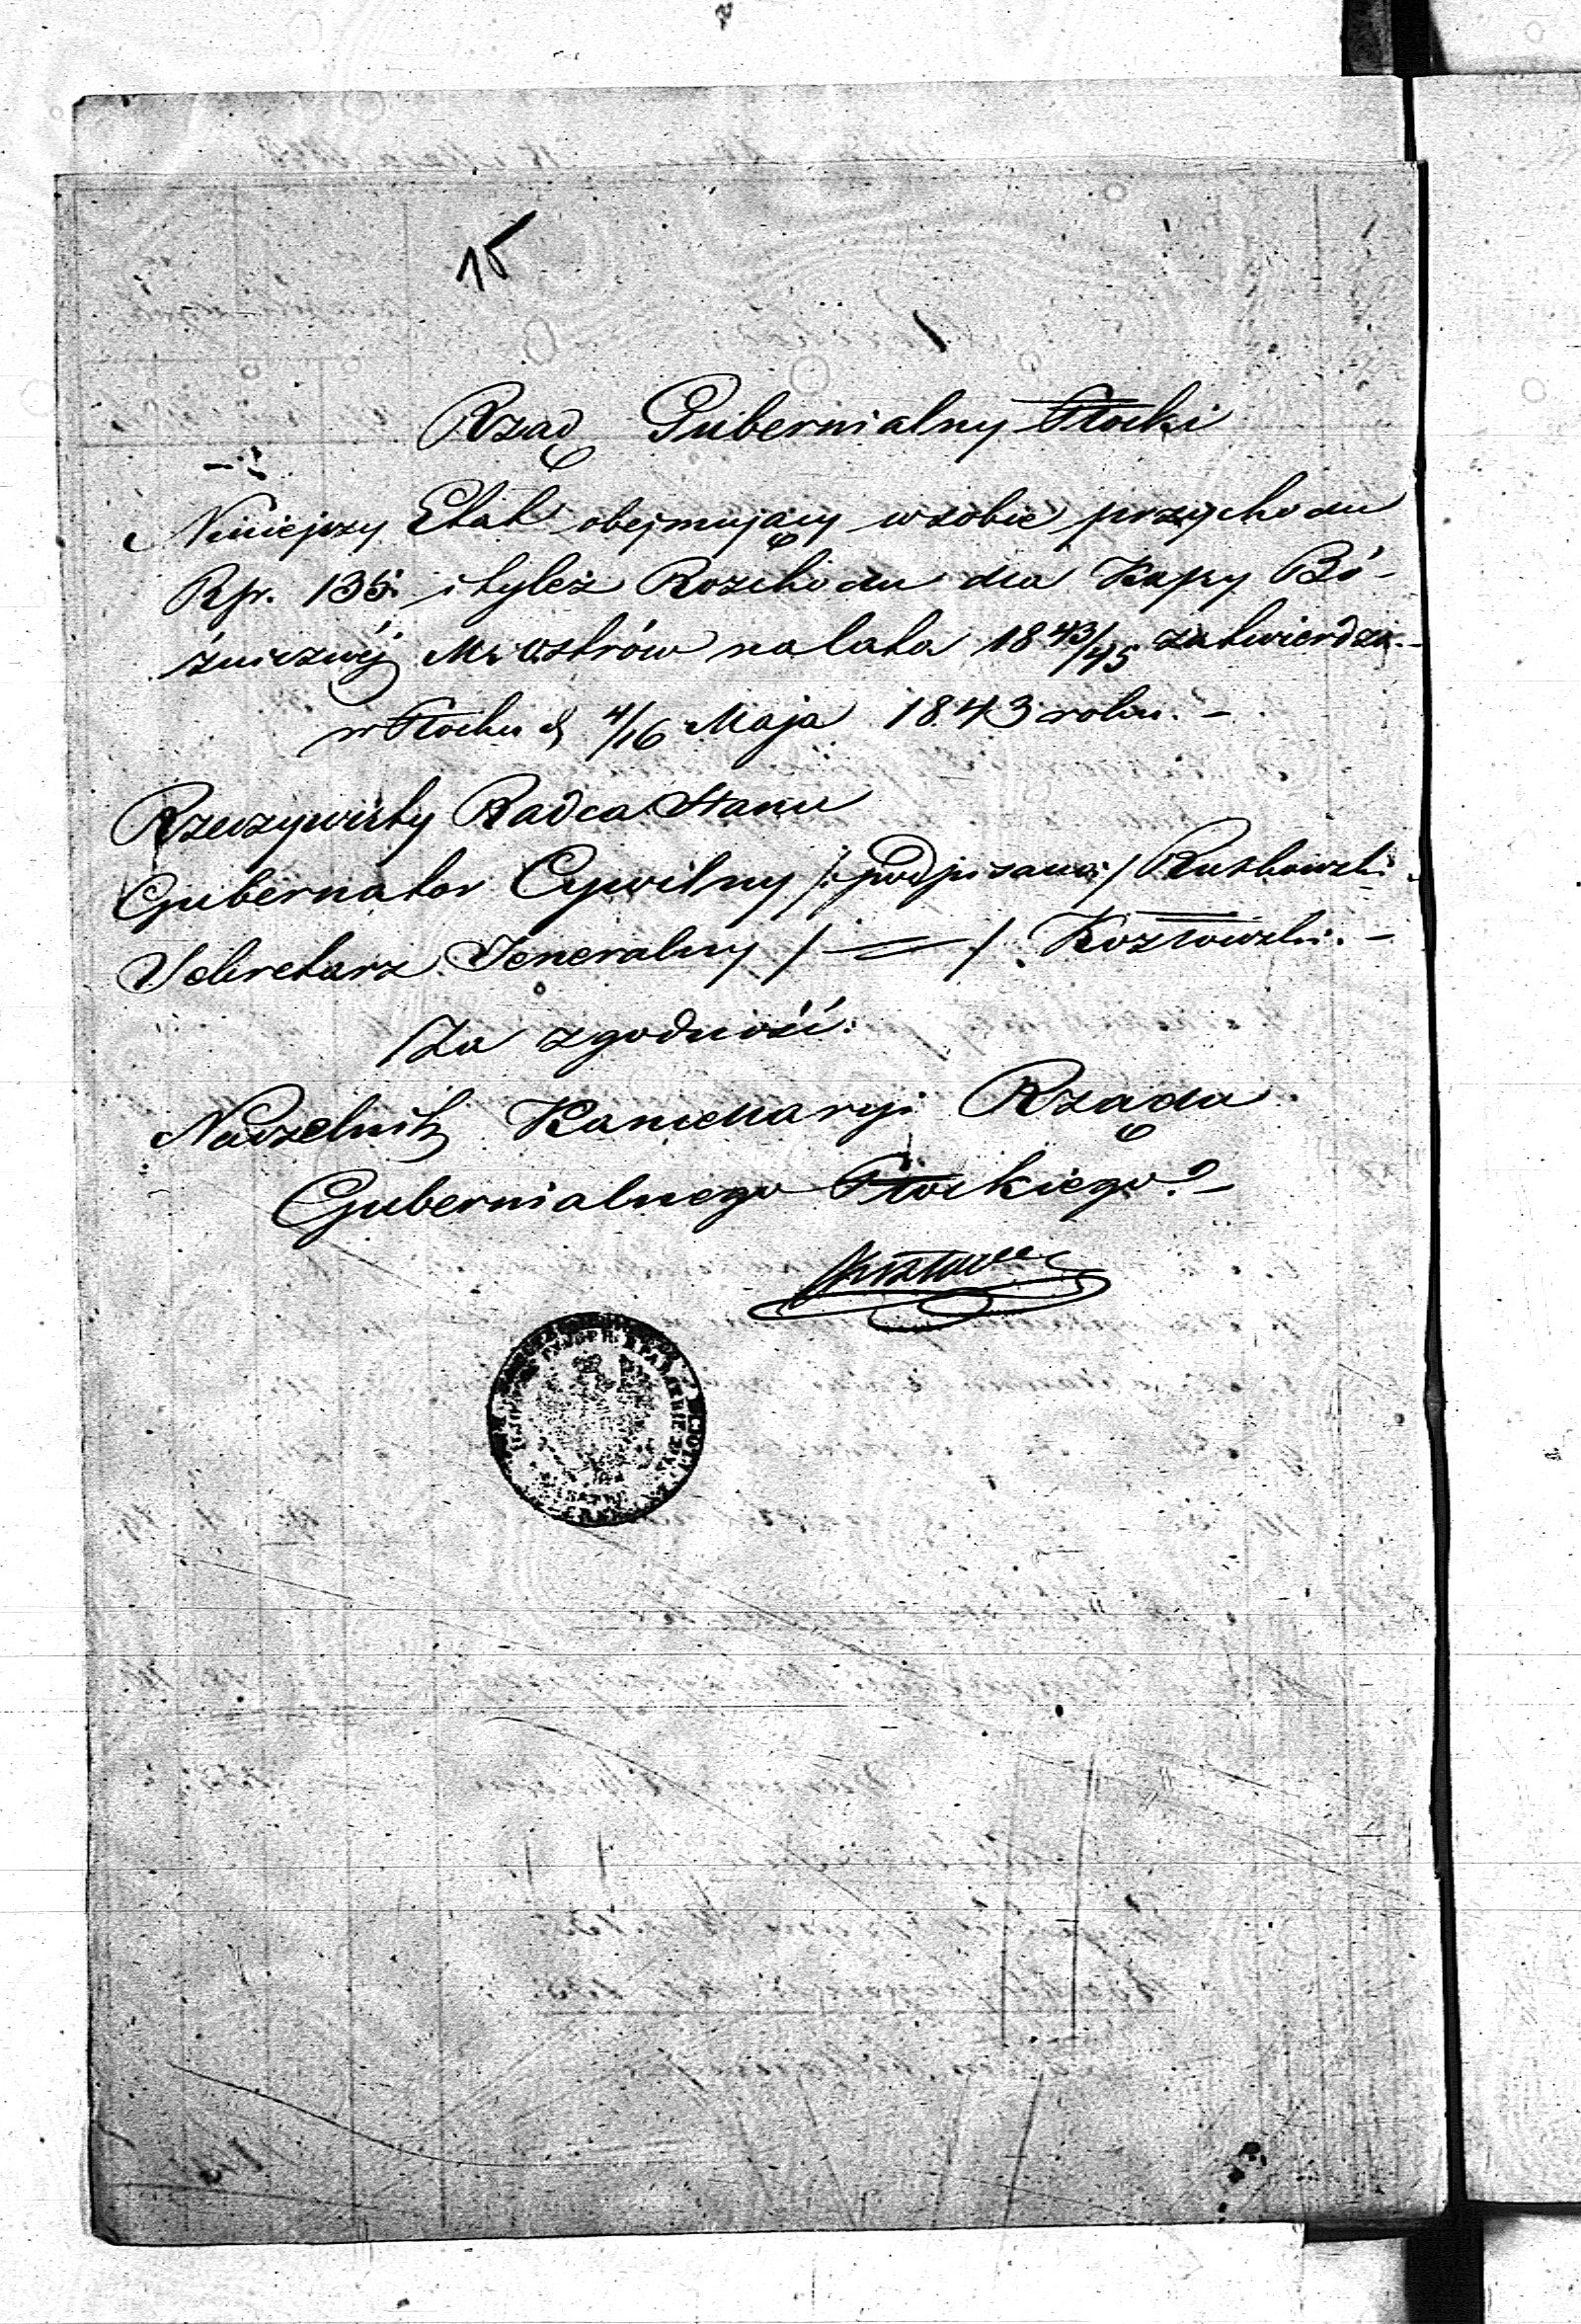 15
Rząd Gubernialny Płocki
Niniejszy Etat obejmujący w sobie przychodu
Rsr. 135. i tyleż Rozchodu dla Kassy Bó-
żnicznéj M. Ostrów na lata 1843/45 zatwierdza.-
w Płocku d. 4/16 Maja 1843 roku. -
Rzeczywisty Radca Stanu
Gubernator Cywilny /: podpisano :/
Sekretarz Jeneralny / = / Kozłowski. -
Za zgodność:
Naczelnik Kancellaryi Rządu
Gubernialnego Płockiego. -